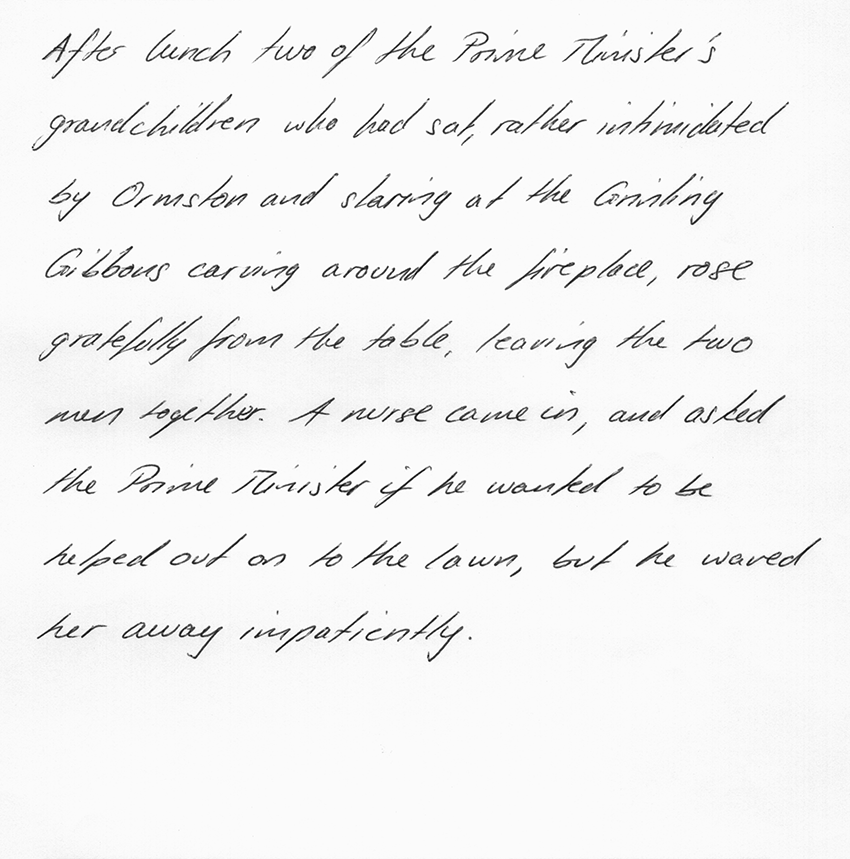 After lunch two of the Prime Minister's
grandchildren who had sat, rather intimidated
by Ormston and staring at the Grinling
Gibbons carving around the fireplace, rose
gratefully from the table, leaving the two
men together. A nurse came in, and asked
the Prime Minister if he wanted to be
helped out on to the lawn, but he waved
her away impatiently.